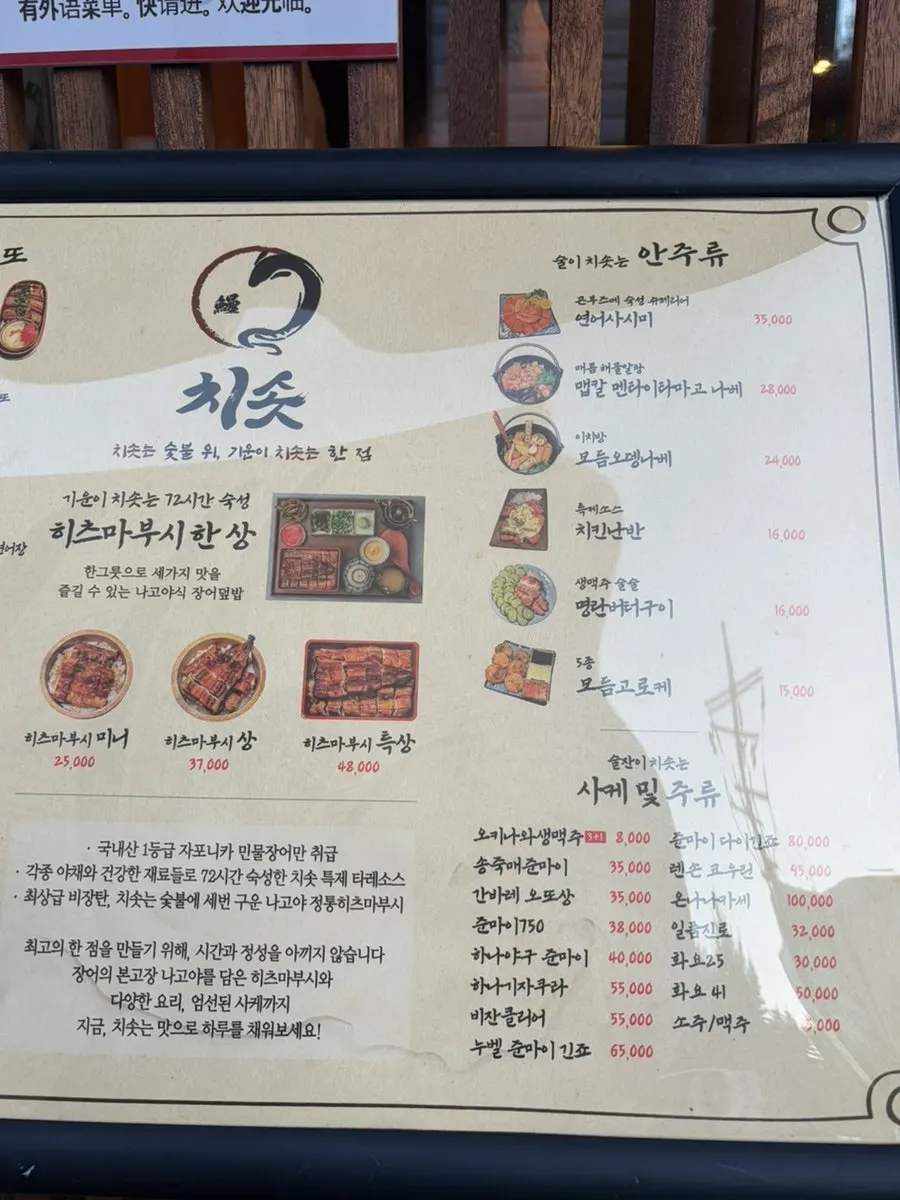 有外语菜单。快请进。欢迎光临。
또
또
연어장
鰻
치솟
치솟는 숯불 위, 기운이 치솟는 한 점
기운이 치솟는 72시간 숙성
히츠마부시 한 상
한그릇으로 세가지 맛을
즐길 수 있는 나고야식 장어덮밥
히츠마부시 미니
25,000
히츠마부시 상
37,000
히츠마부시 특상
48,000
· 국내산 1등급 자포니카 민물장어만 취급
· 각종 야채와 건강한 재료들로 72시간 숙성한 치솟 특제 타레소스
· 최상급 비장탄, 치솟는 숯불에 세번 구운 나고야 정통히츠마부시
최고의 한 점을 만들기 위해, 시간과 정성을 아끼지 않습니다
장어의 본고장 나고야를 담은 히츠마부시와
다양한 요리, 엄선된 사케까지
지금, 치솟는 맛으로 하루를 채워보세요!
술이 치솟는 안주류
곤부즈메 숙성 슈페리어
연어사시미 35,000
매콤 해물알탕
맵칼 멘타이타마고 나베 28,000
이치방
모듬오뎅나베 24,000
특제소스
치킨난반 16,000
생맥주 술술
명란버터구이 16,000
5종
모듬고로케 15,000
술잔이 치솟는
사케 및 주류
오키나와생맥주 3+1 8,000
송죽매준마이 35,000
간바레 오또상 35,000
준마이750 38,000
하나야구 준마이 40,000
하나기자쿠라 55,000
비잔클리어 55,000
누벨 준마이 긴죠 65,000
준마이 다이긴죠 80,000
렌손 쿄우린 95,000
온나나카세 100,000
일품진로 32,000
화요25 30,000
화요 41 50,000
소주/맥주 5,000